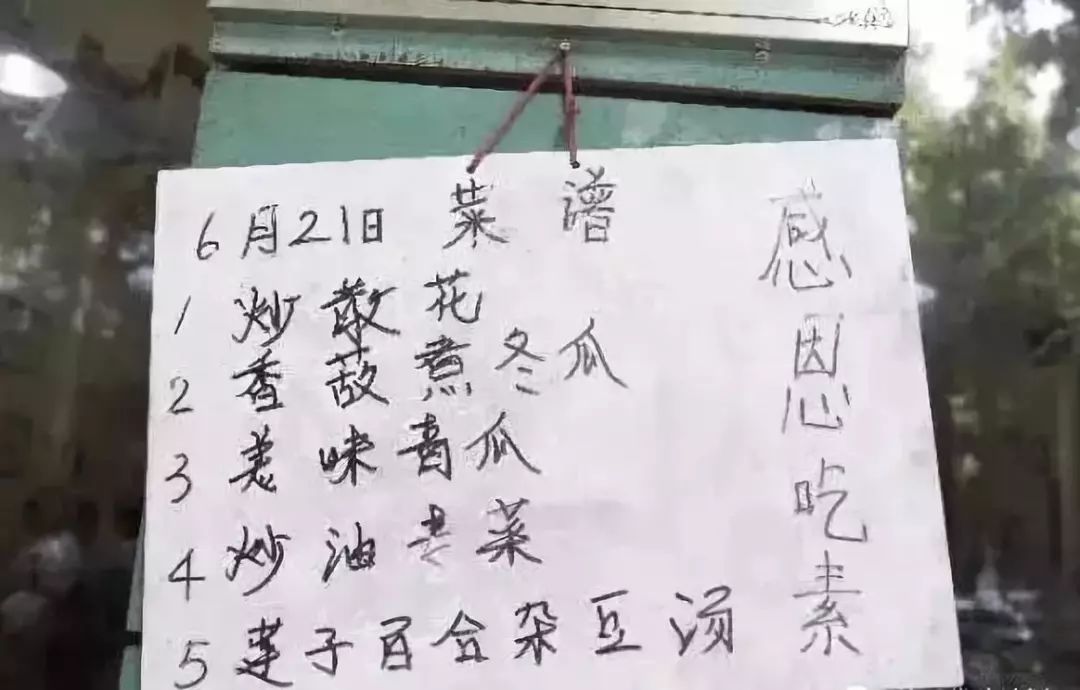 6月21日 菜谱
1 炒散花
2 香菇煮冬瓜
3 美味青瓜
4 炒油麦菜
5 莲子百合杂豆汤
感恩吃素